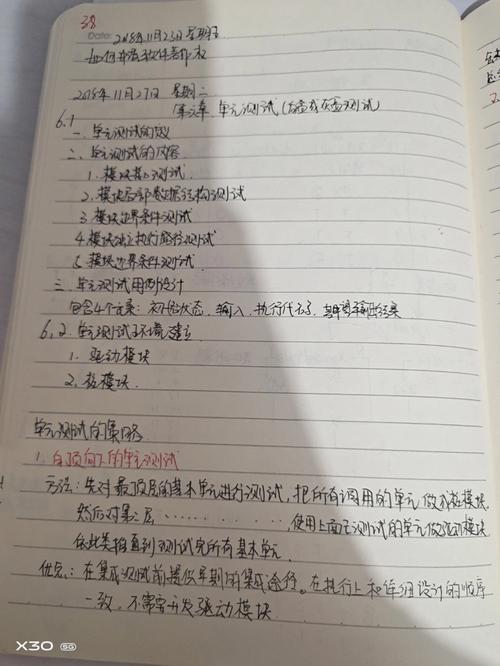 38
Date: 2018年11月23日 星期五
如何申请软件著作权
2018年11月27日 星期二
第六章 单元测试(白盒或灰盒测试)
6.1
一、单元测试的定义
二、单元测试的内容
1.模块接口测试.
2.模块局部数据结构测试
3.模块边界条件测试
4.模块独立执行路径测试
5.模块边界条件测试.
三 单元测试用例设计
包含4个元素:初始状态,输入,执行代码,期望输出结果
6.2.单元测试环境建立
1.驱动模块
2.桩模块.
单元测试的策略
1.自顶向下的单元测试
方法:先对最顶层的基本单元进行测试,把所有调用的单元做成桩模块.
然后对第二层…………,使用上面已测试的单元做驱动模块
依此类推直到测试完所有基本单元.
优点:在集成测试前提供早期的集成途径。在执行上和详细设计的顺序
一致,不需要开发驱动模块
X30 5G